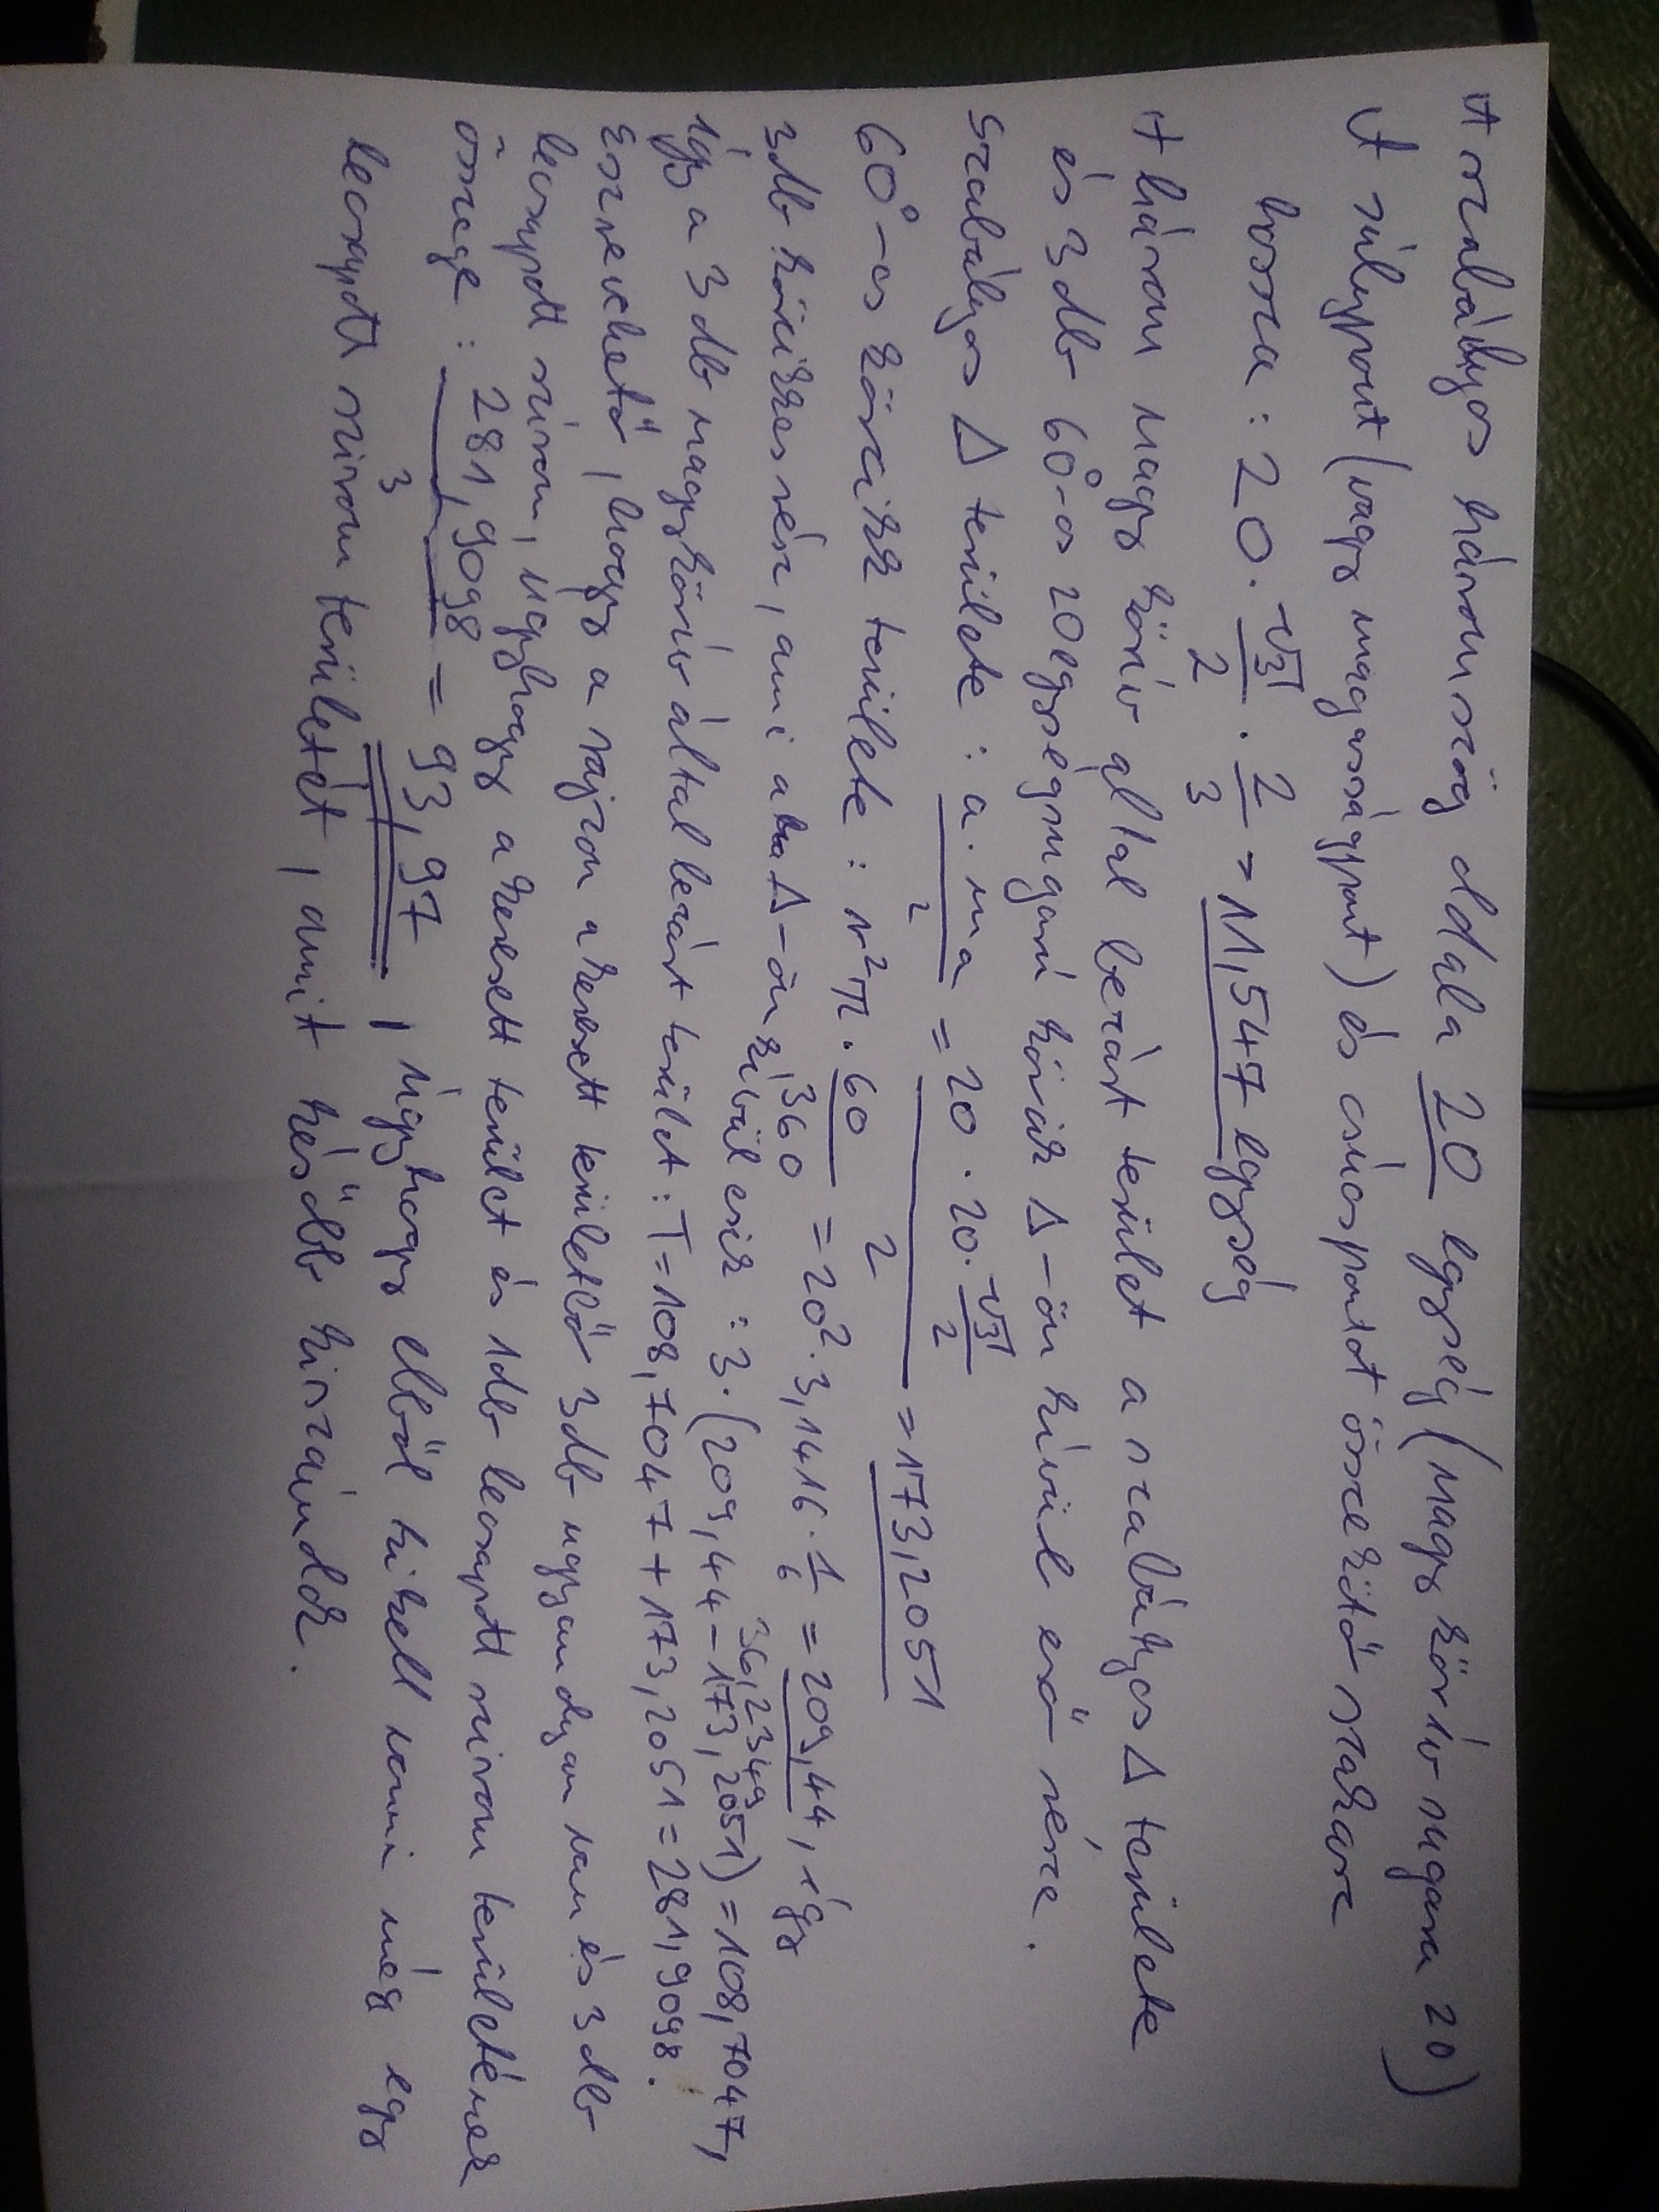 A szabályos háromszög oldala 20 egység (nagy körív sugara 20)
A súlypont (vagy magasságpont) és csúcspontot összekötő szakasz
hossza : 20 · √3/2 · 2/3 = 11,547 egység
A három nagy körív által bezárt terület a szabályos Δ területe
és 3 db 60°-os 20 egységsugarú körcikk Δ-ön kívül eső része.
Szabályos Δ területe : a · ma / 2 = 20 · 20 · √3/2 / 2 = 173,2051
60°-os körcikk területe : r²π · 60/360 = 20² · 3,1416 · 1/6 = 209,44, így
3db körcikkes rész, ami a Δ-ön kívül esik : 3 · (209,44 – 173,2051) = 108,7047,
36,2349
így a 3 db nagy körív által bezárt terület : T = 108,7047 + 173,2051 = 281,9098.
Észrevehető, hogy a rajzon a keresett területből 3db ugyanolyan van és 3 db
lecsapott szirom, úgyhogy a keresett terület és 1db lecsapott szirom területének
összege : 281,9098 / 3 = 93,97, úgyhogy ebből ki kell vonni még egy
lecsapott szirom területét, amit később kiszámolok.